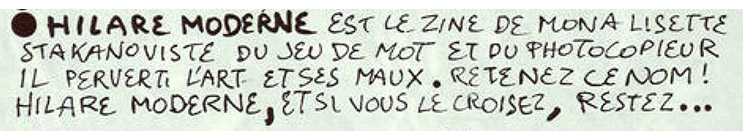 ● HILARE MODERNE EST LE ZINE DE MONA LISETTE
STAKANOVISTE DU JEU DE MOT ET DU PHOTOCOPIEUR
IL PERVERTI L'ART ET SES MAUX. RETENEZ CE NOM!
HILARE MODERNE, ET SI VOUS LE CROISEZ, RESTEZ...